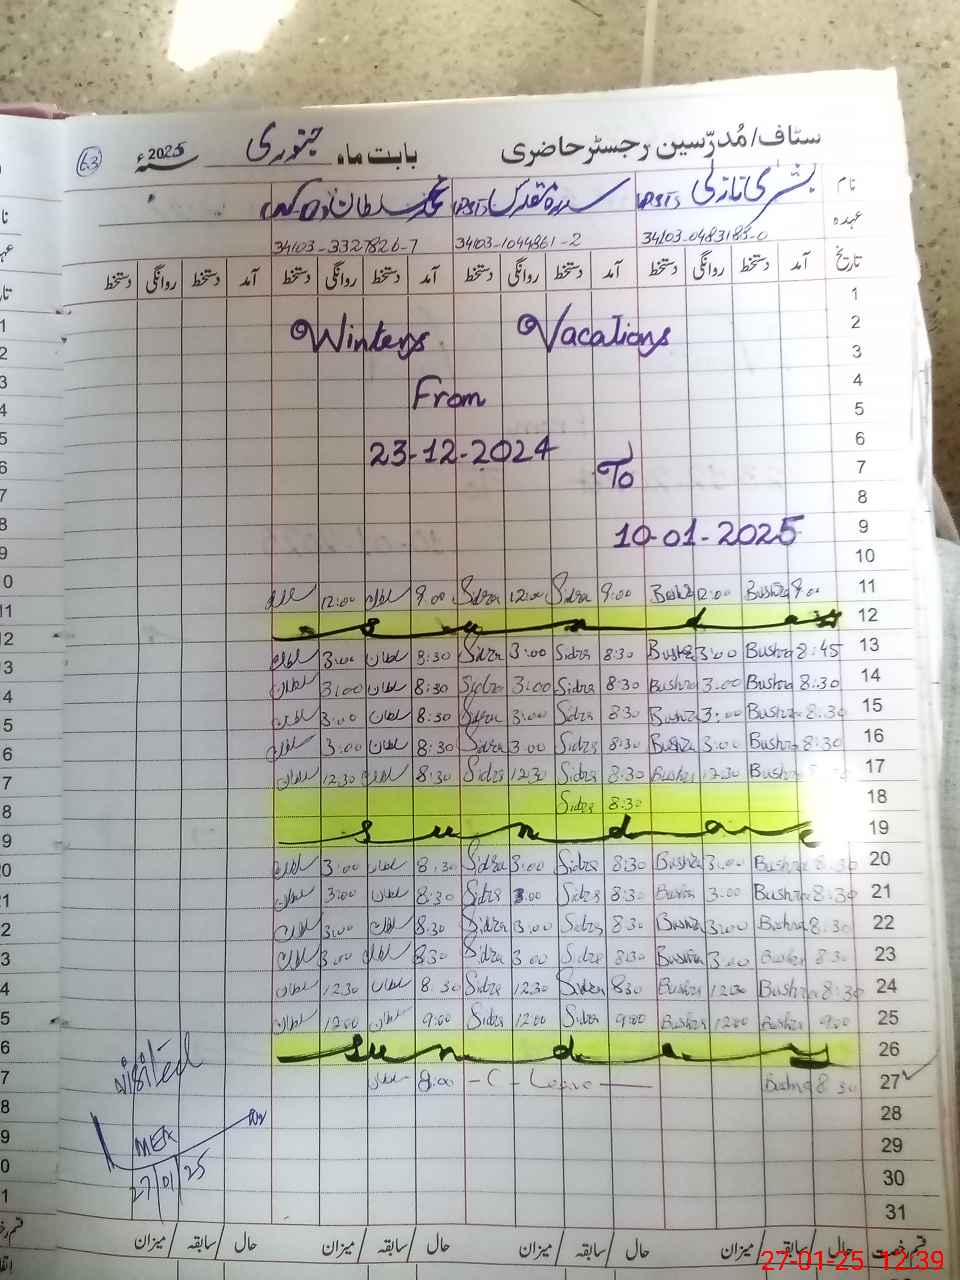 63
سٹاف/مُدرّسین رجسٹر حاضری بابت ماہ جنوری 2025ء
نام بشریٰ نازلی PSTs سدرۃ مقدس PSTs محمد سلطان
عہدہ
34103-0483183-0 34103-1044861-2 34103-3327826-7
تاریخ آمد دستخط روانگی دستخط آمد دستخط روانگی دستخط آمد دستخط روانگی دستخط آمد دستخط روانگی دستخط
1
2
Winters Vacations
3
4
From
5
6
23-12-2024
7
To
8
9
10-01-2025
10
11 9.00 Bushra 12:00 Bushra 9:00 Sidra 12:00 Sidra 9:00 سلطان 12:00 سلطان
12 Sunday
13 8:45 Bushra 3:00 Bushra 8:30 Sidra 3:00 Sidra 8:30 سلطان 3:00 سلطان
14 8:30 Bushra 3:00 Bushra 8:30 Sidra 3:00 Sidra 8:30 سلطان 3:00 سلطان
15 8:30 Bushra 3:00 Bushra 8:30 Sidra 3:00 Sidra 8:30 سلطان 3:00 سلطان
16 8:30 Bushra 3:00 Bushra 8:30 Sidra 3:00 Sidra 8:30 سلطان 3:00 سلطان
17 Bushra 12:30 Bushra 8:30 Sidra 12:30 Sidra 8:30 سلطان 12:30 سلطان
18 8:30 Sidra
19 Sunday
20 8:30 Bushra 3:00 Bushra 8:30 Sidra 3:00 Sidra 8:30 سلطان 3:00 سلطان
21 8:30 Bushra 3:00 Bushra 8:30 Sidra 3:00 Sidra 8:30 سلطان 3:00 سلطان
22 8:30 Bushra 3:00 Bushra 8:30 Sidra 3:00 Sidra 8:30 سلطان 3:00 سلطان
23 8:30 Bushra 3:00 Bushra 8:30 Sidra 3:00 Sidra 8:30 سلطان 3:00 سلطان
24 8:30 Bushra 12:30 Bushra 8:30 Sidra 12:30 Sidra 8:30 سلطان 12:30 سلطان
25 9:00 Bushra 12:00 Bushra 9:00 Sidra 12:00 Sidra 9:00 سلطان 12:00 سلطان
26 Sunday
27 8:30 Bushra - C - Leave - 8:00 سلطان
Visited
28
29
MEA
30
27/01/25
31
قسم رخصت حال سابقہ میزان حال سابقہ میزان حال سابقہ میزان حال سابقہ میزان
27-01-25 12:39